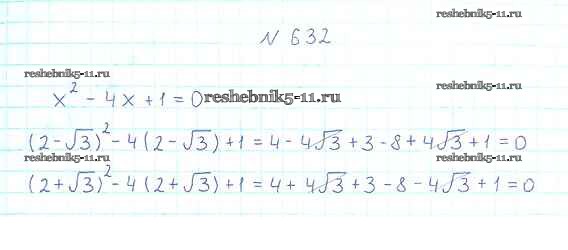 reshebnik5-11.ru
№ 632
reshebnik5-11.ru
reshebnik5-11.ru
x² - 4x + 1 = 0 reshebnik5-11.ru
(2-√3)² - 4(2-√3) + 1 = 4 - 4√3 + 3 - 8 + 4√3 + 1 = 0
reshebnik5-11.ru
reshebnik5-11.ru
(2+√3)² - 4(2+√3) + 1 = 4 + 4√3 + 3 - 8 - 4√3 + 1 = 0